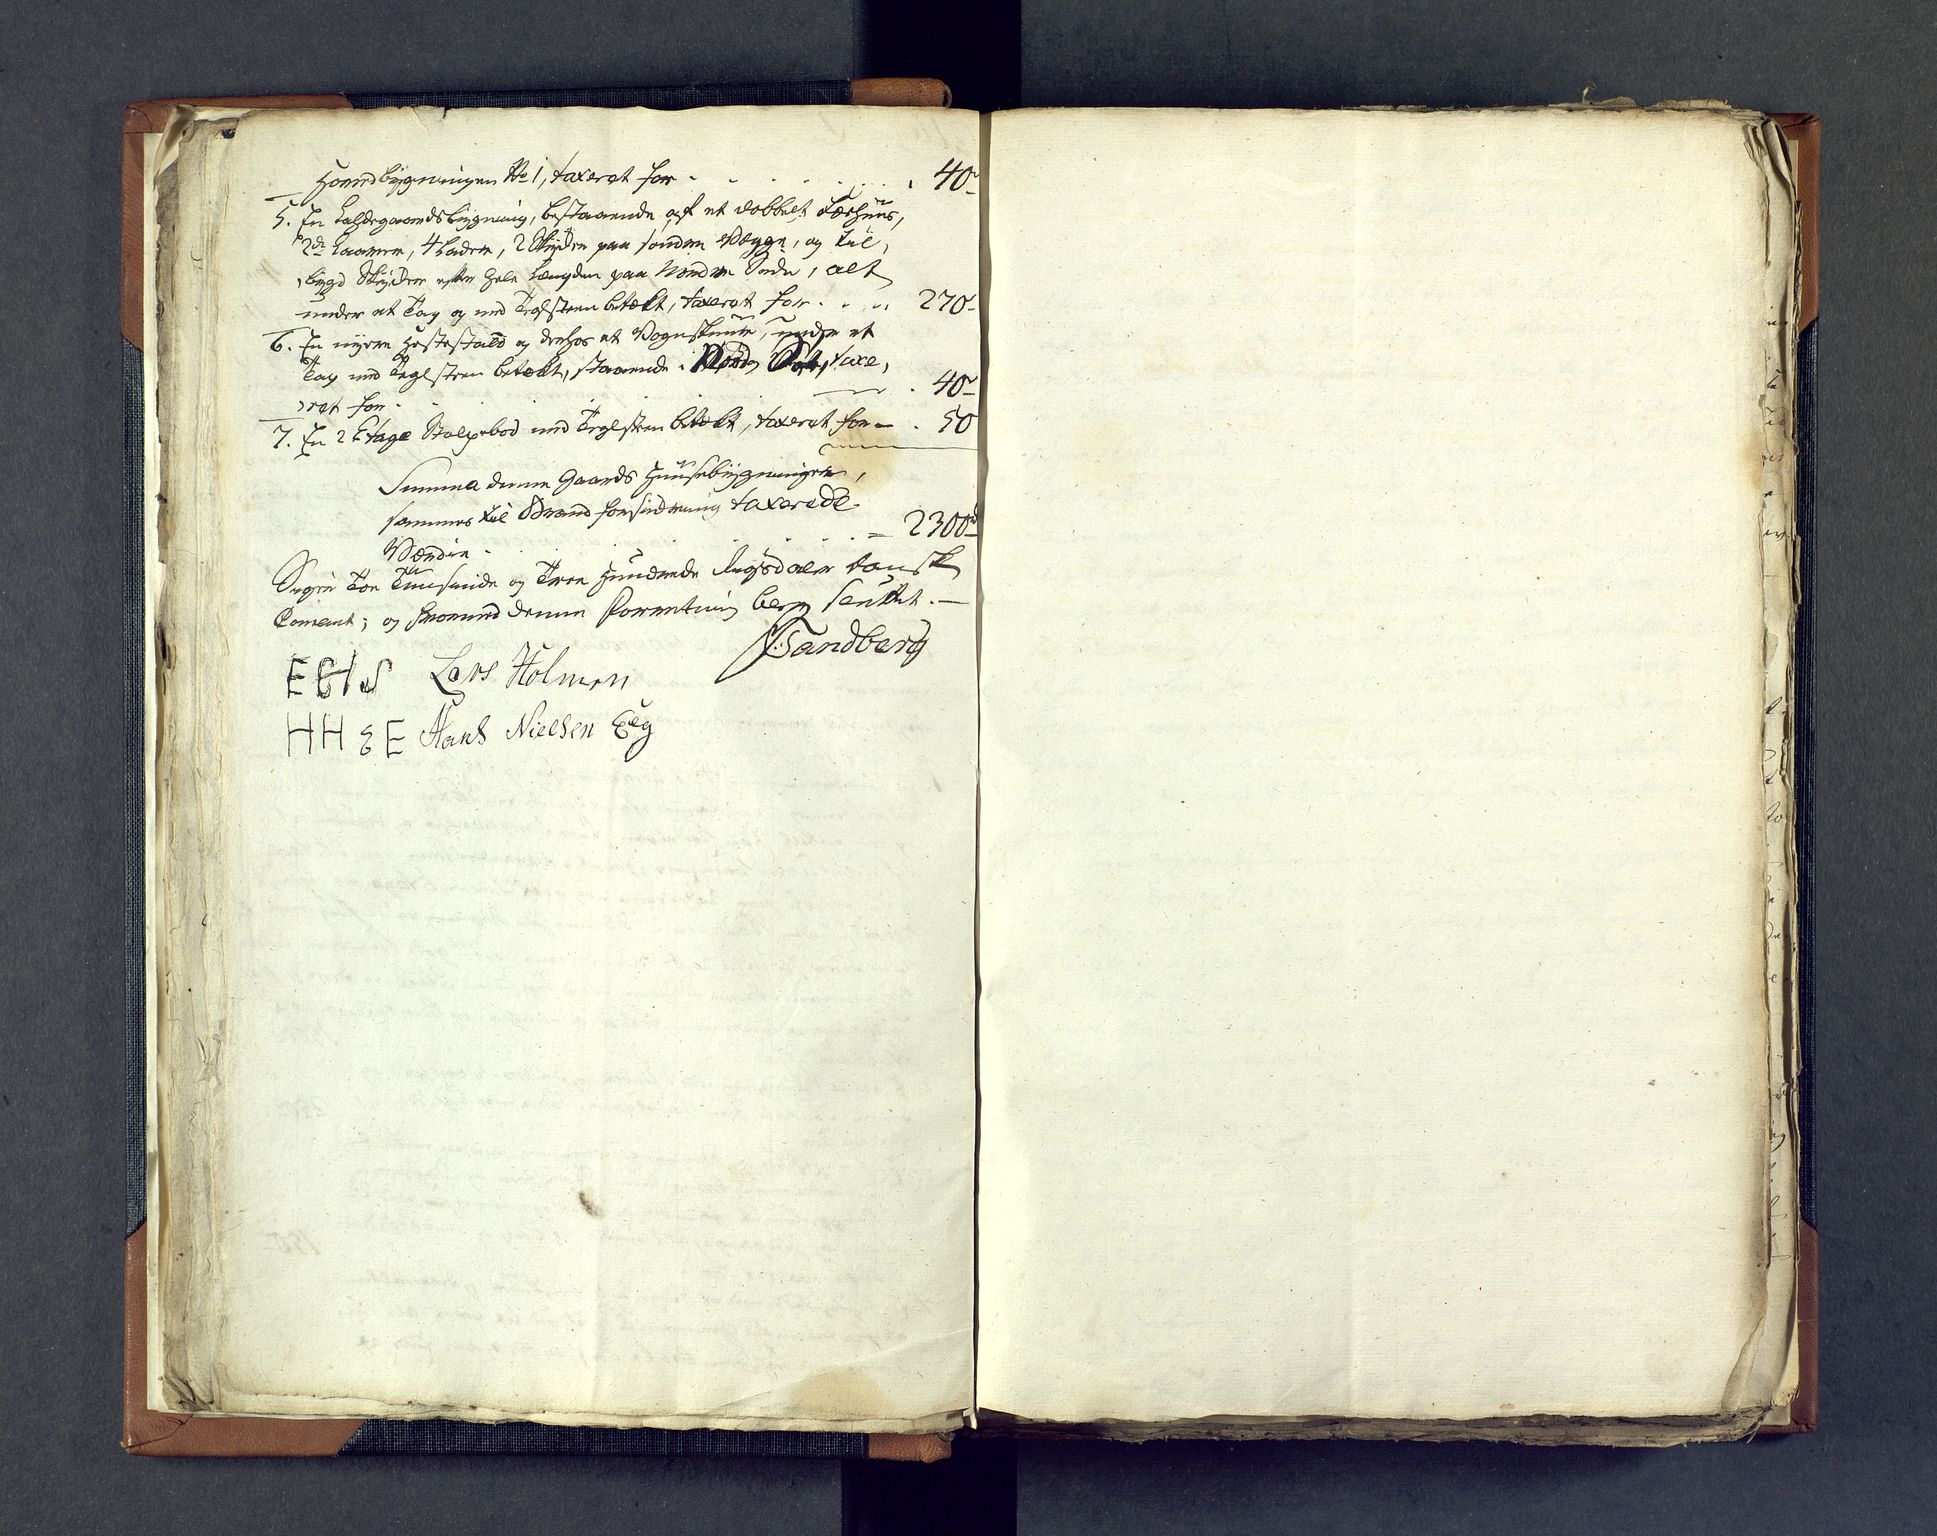 Hovedbygningen No 1, taxeret for . . . . . . . 40
5. En Ladegaardsbygning, bestaaende af et dobbelt Fæehuus,
2de Laaver, 4 Lader, 2 Skjeder paa søndre Vegge, og til,
bygd Skjeder efter hele Længden paa Nordre Side, alt
under et Tag og med Teglsteen betækt, taxeret for . . . 270
6. En nyere Hestestald og derhos et Vognskuur, under et
Tag med Teglsteen betækt, staaende i taxe,
ret for . . . . . 40
7. En 2 Etage Stolpebod med Teglsteen betækt, taxeret for . 50
Summa denne Gaards Huusebygninger,
sammes til Brand forsikring taxerede
Værdie . . . . . . . . = 2300
Siger Toe Tusinde og Tree Hundrede Rigsdaler dansk
Courant; og hvormed denne Forretning blev sluttet. —
Sandberg
E G H S Lars Holmen
H H S E Hans Nielsen Eeg